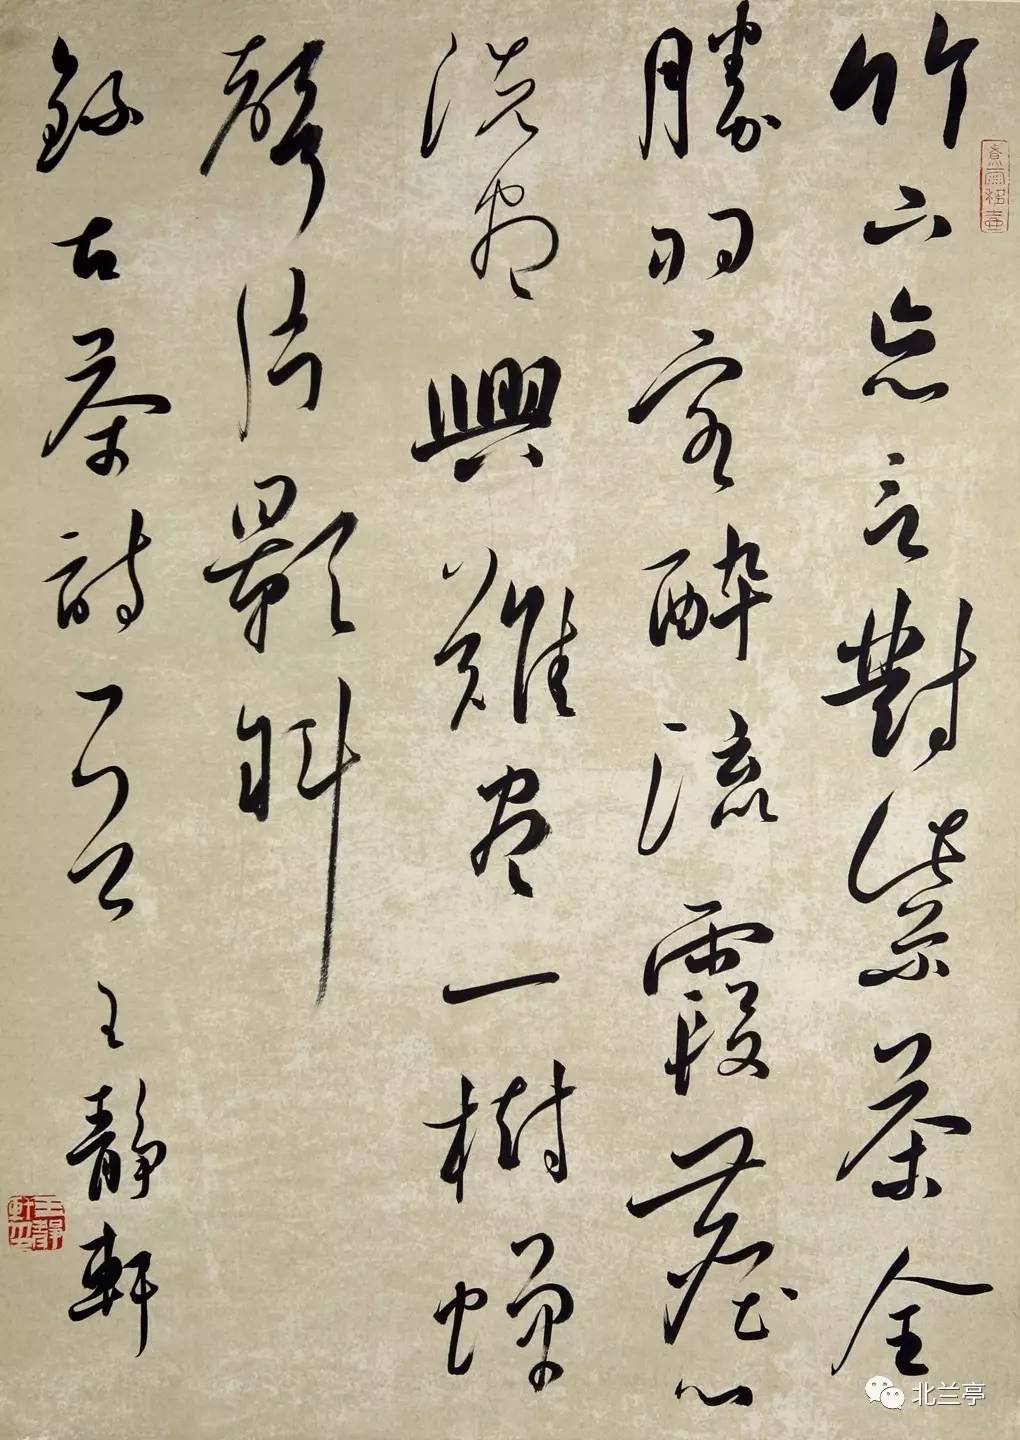 竹下忘言對紫茶全
勝羽客醉流霞塵心
洗盡興難盡一樹蟬
聲片影斜
錄古茶詩一首 王靜軒
王靜軒印
北兰亭